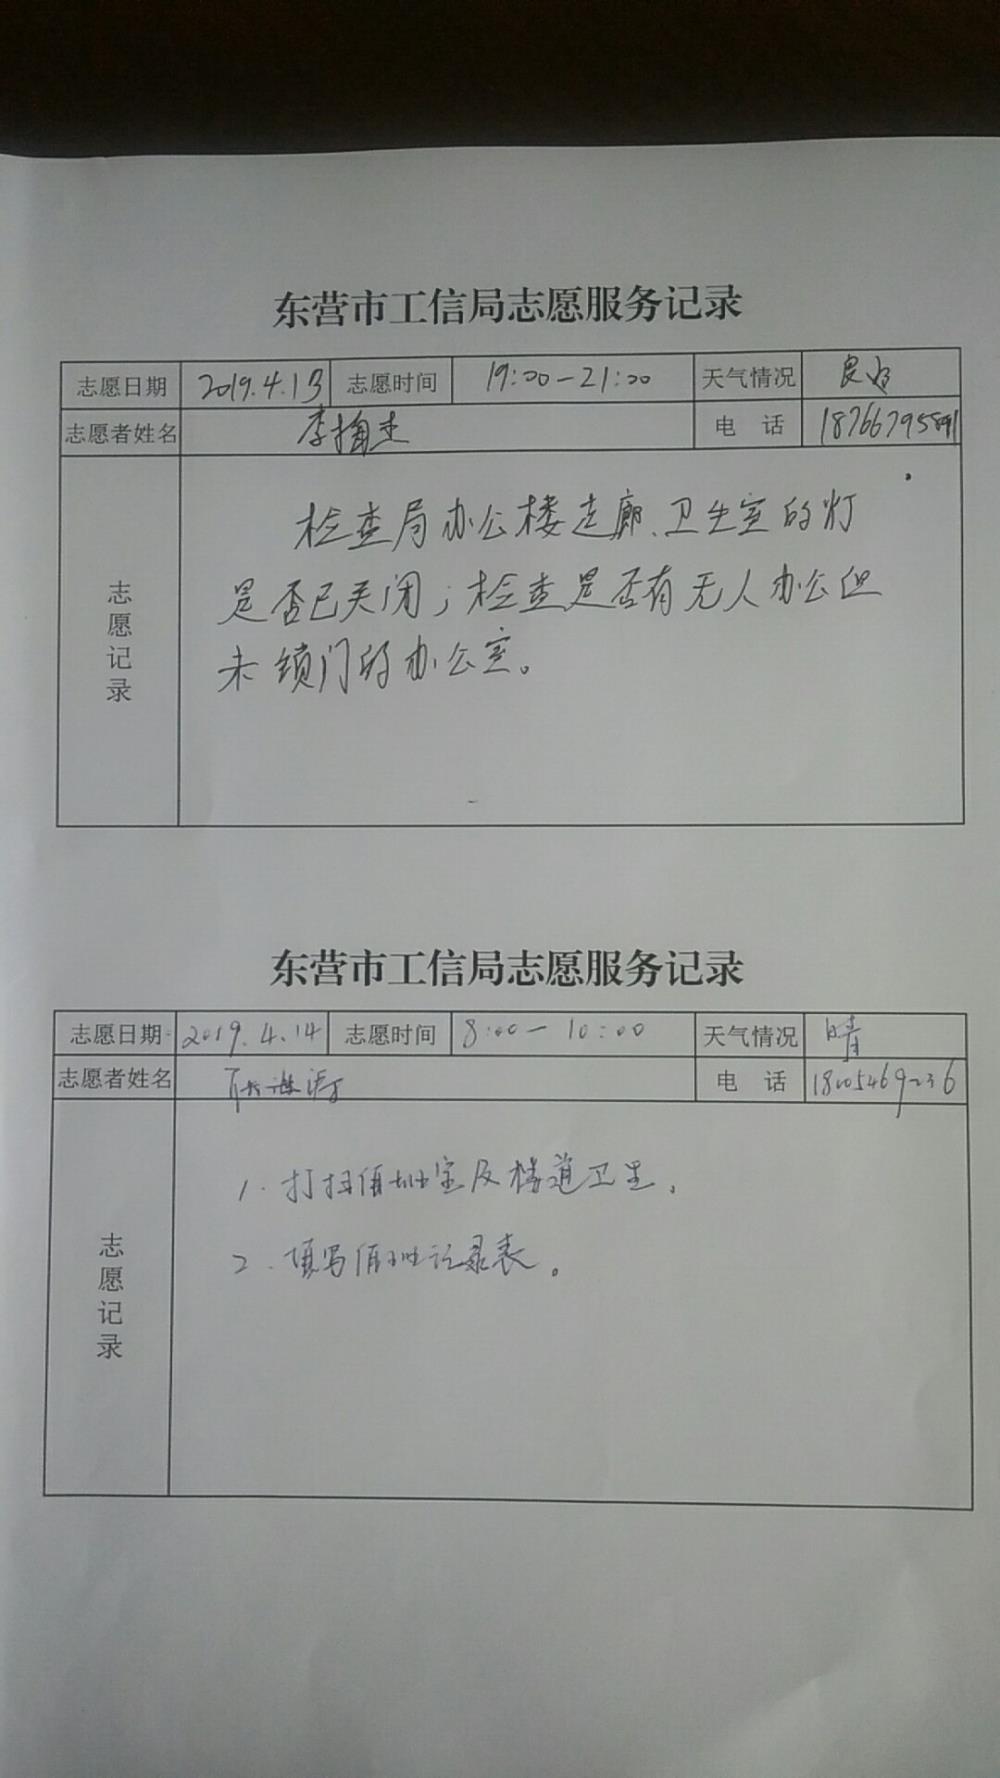 东营市工信局志愿服务记录
志愿日期 2019.4.13 志愿时间 19:00-21:00 天气情况 良好
志愿者姓名 李梅圭 电 话 18766795891
志愿记录
检查局办公楼走廊、卫生室的灯
是否已关闭；检查是否有无人办公但
未锁门的办公室。
东营市工信局志愿服务记录
志愿日期 2019.4.14 志愿时间 8:00-10:00 天气情况 晴
志愿者姓名 电 话 18005469236
志愿记录
1. 打扫值班室及楼道卫生，
2. 填写值班记录表。